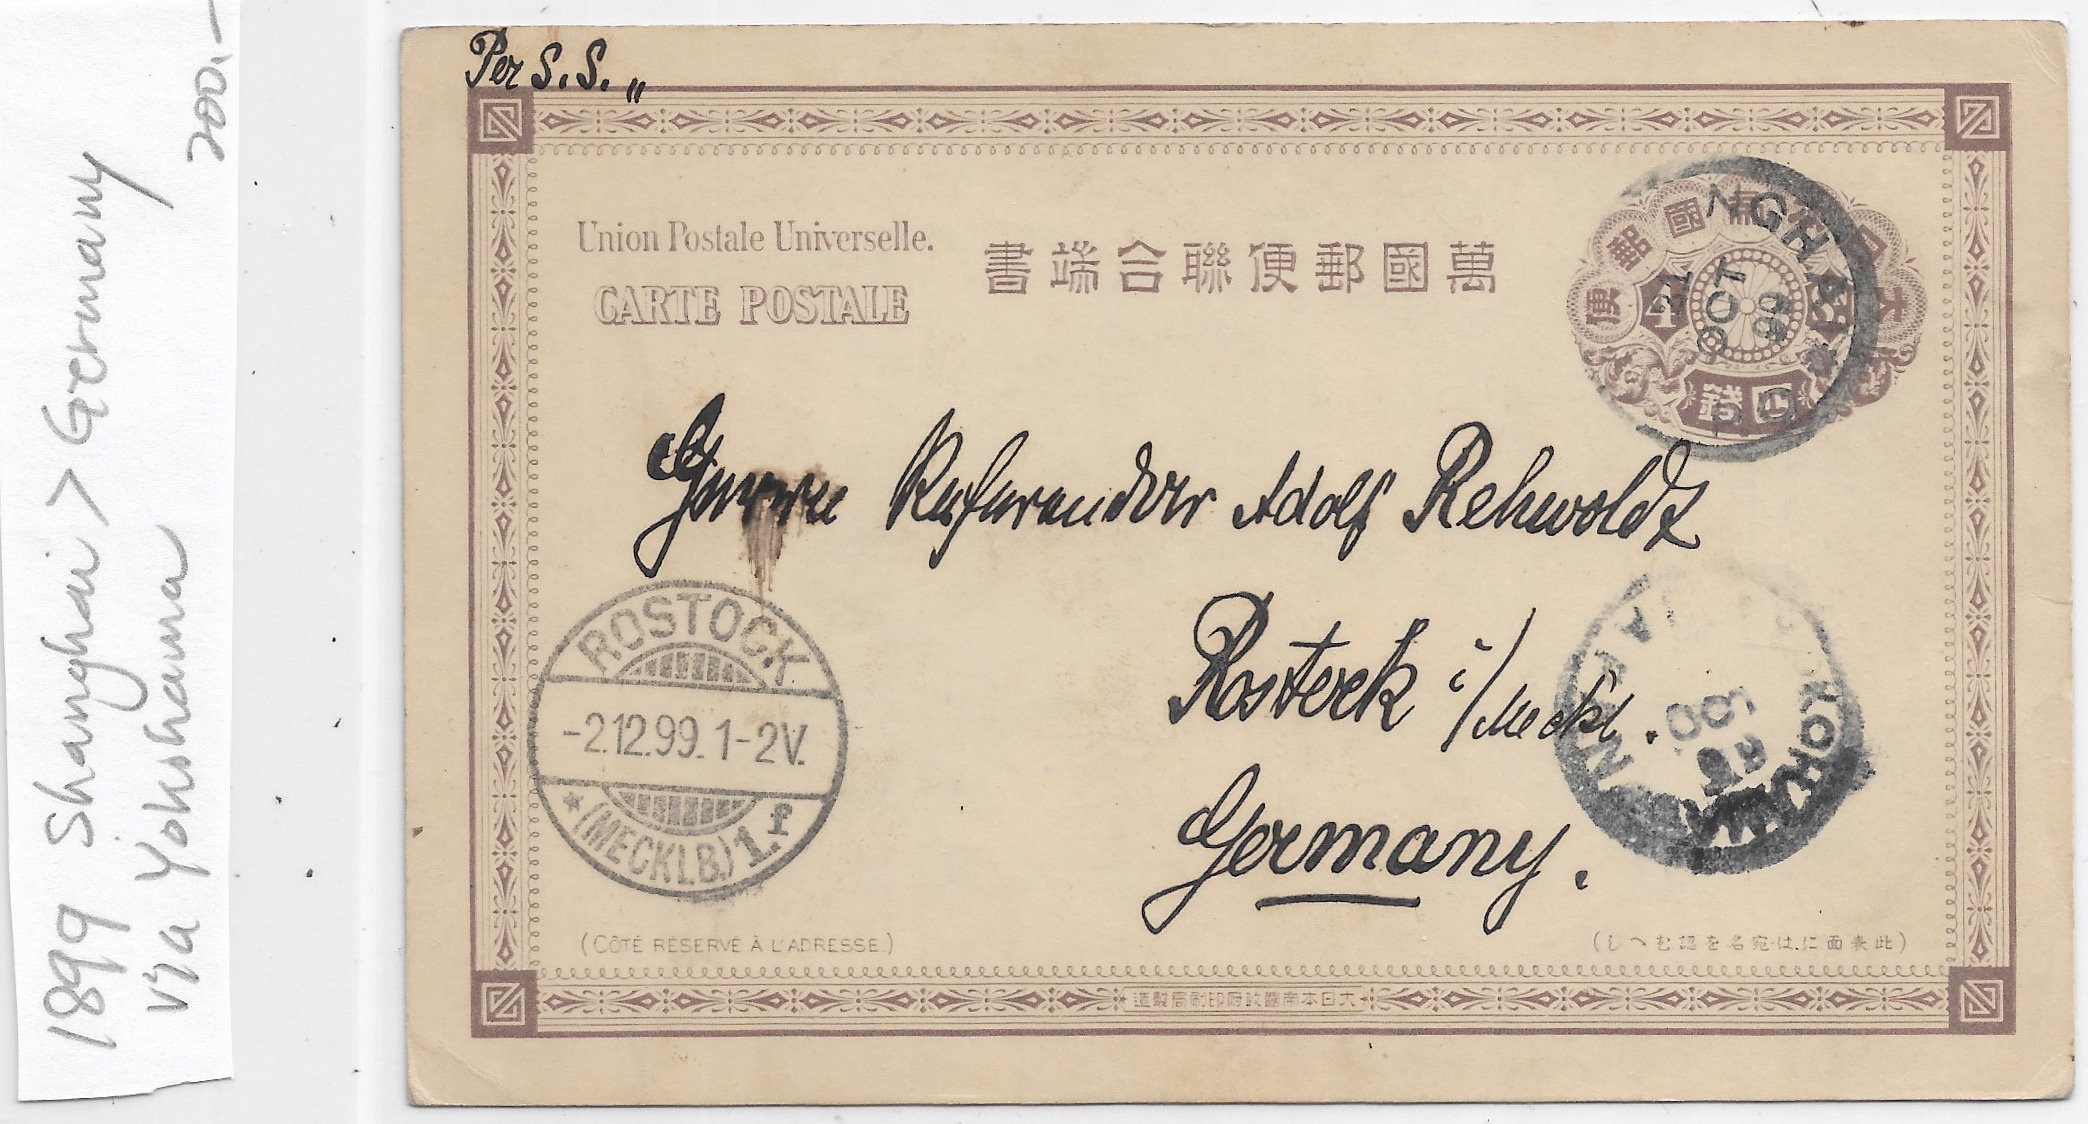 1899 Shanghai > Germany
via Yokohama
200.-
Per S.S. „
Union Postale Universelle.
CARTE POSTALE
萬國郵便聯合端書
大日本帝國郵便
4
四錢
NGHAI
21 OCT 99
Herrn Referendar Adolf Rehwoldt
Rostock i/Meckl.
Germany.
ROSTOCK
-2.12.99.1-2V.
*(MECKLB.)1.f
YOKOHAMA
JAPAN
(CÔTÉ RÉSERVÉ À L'ADRESSE.)
(此表面には宛名を認むへし)
大日本帝國政府印刷局製造